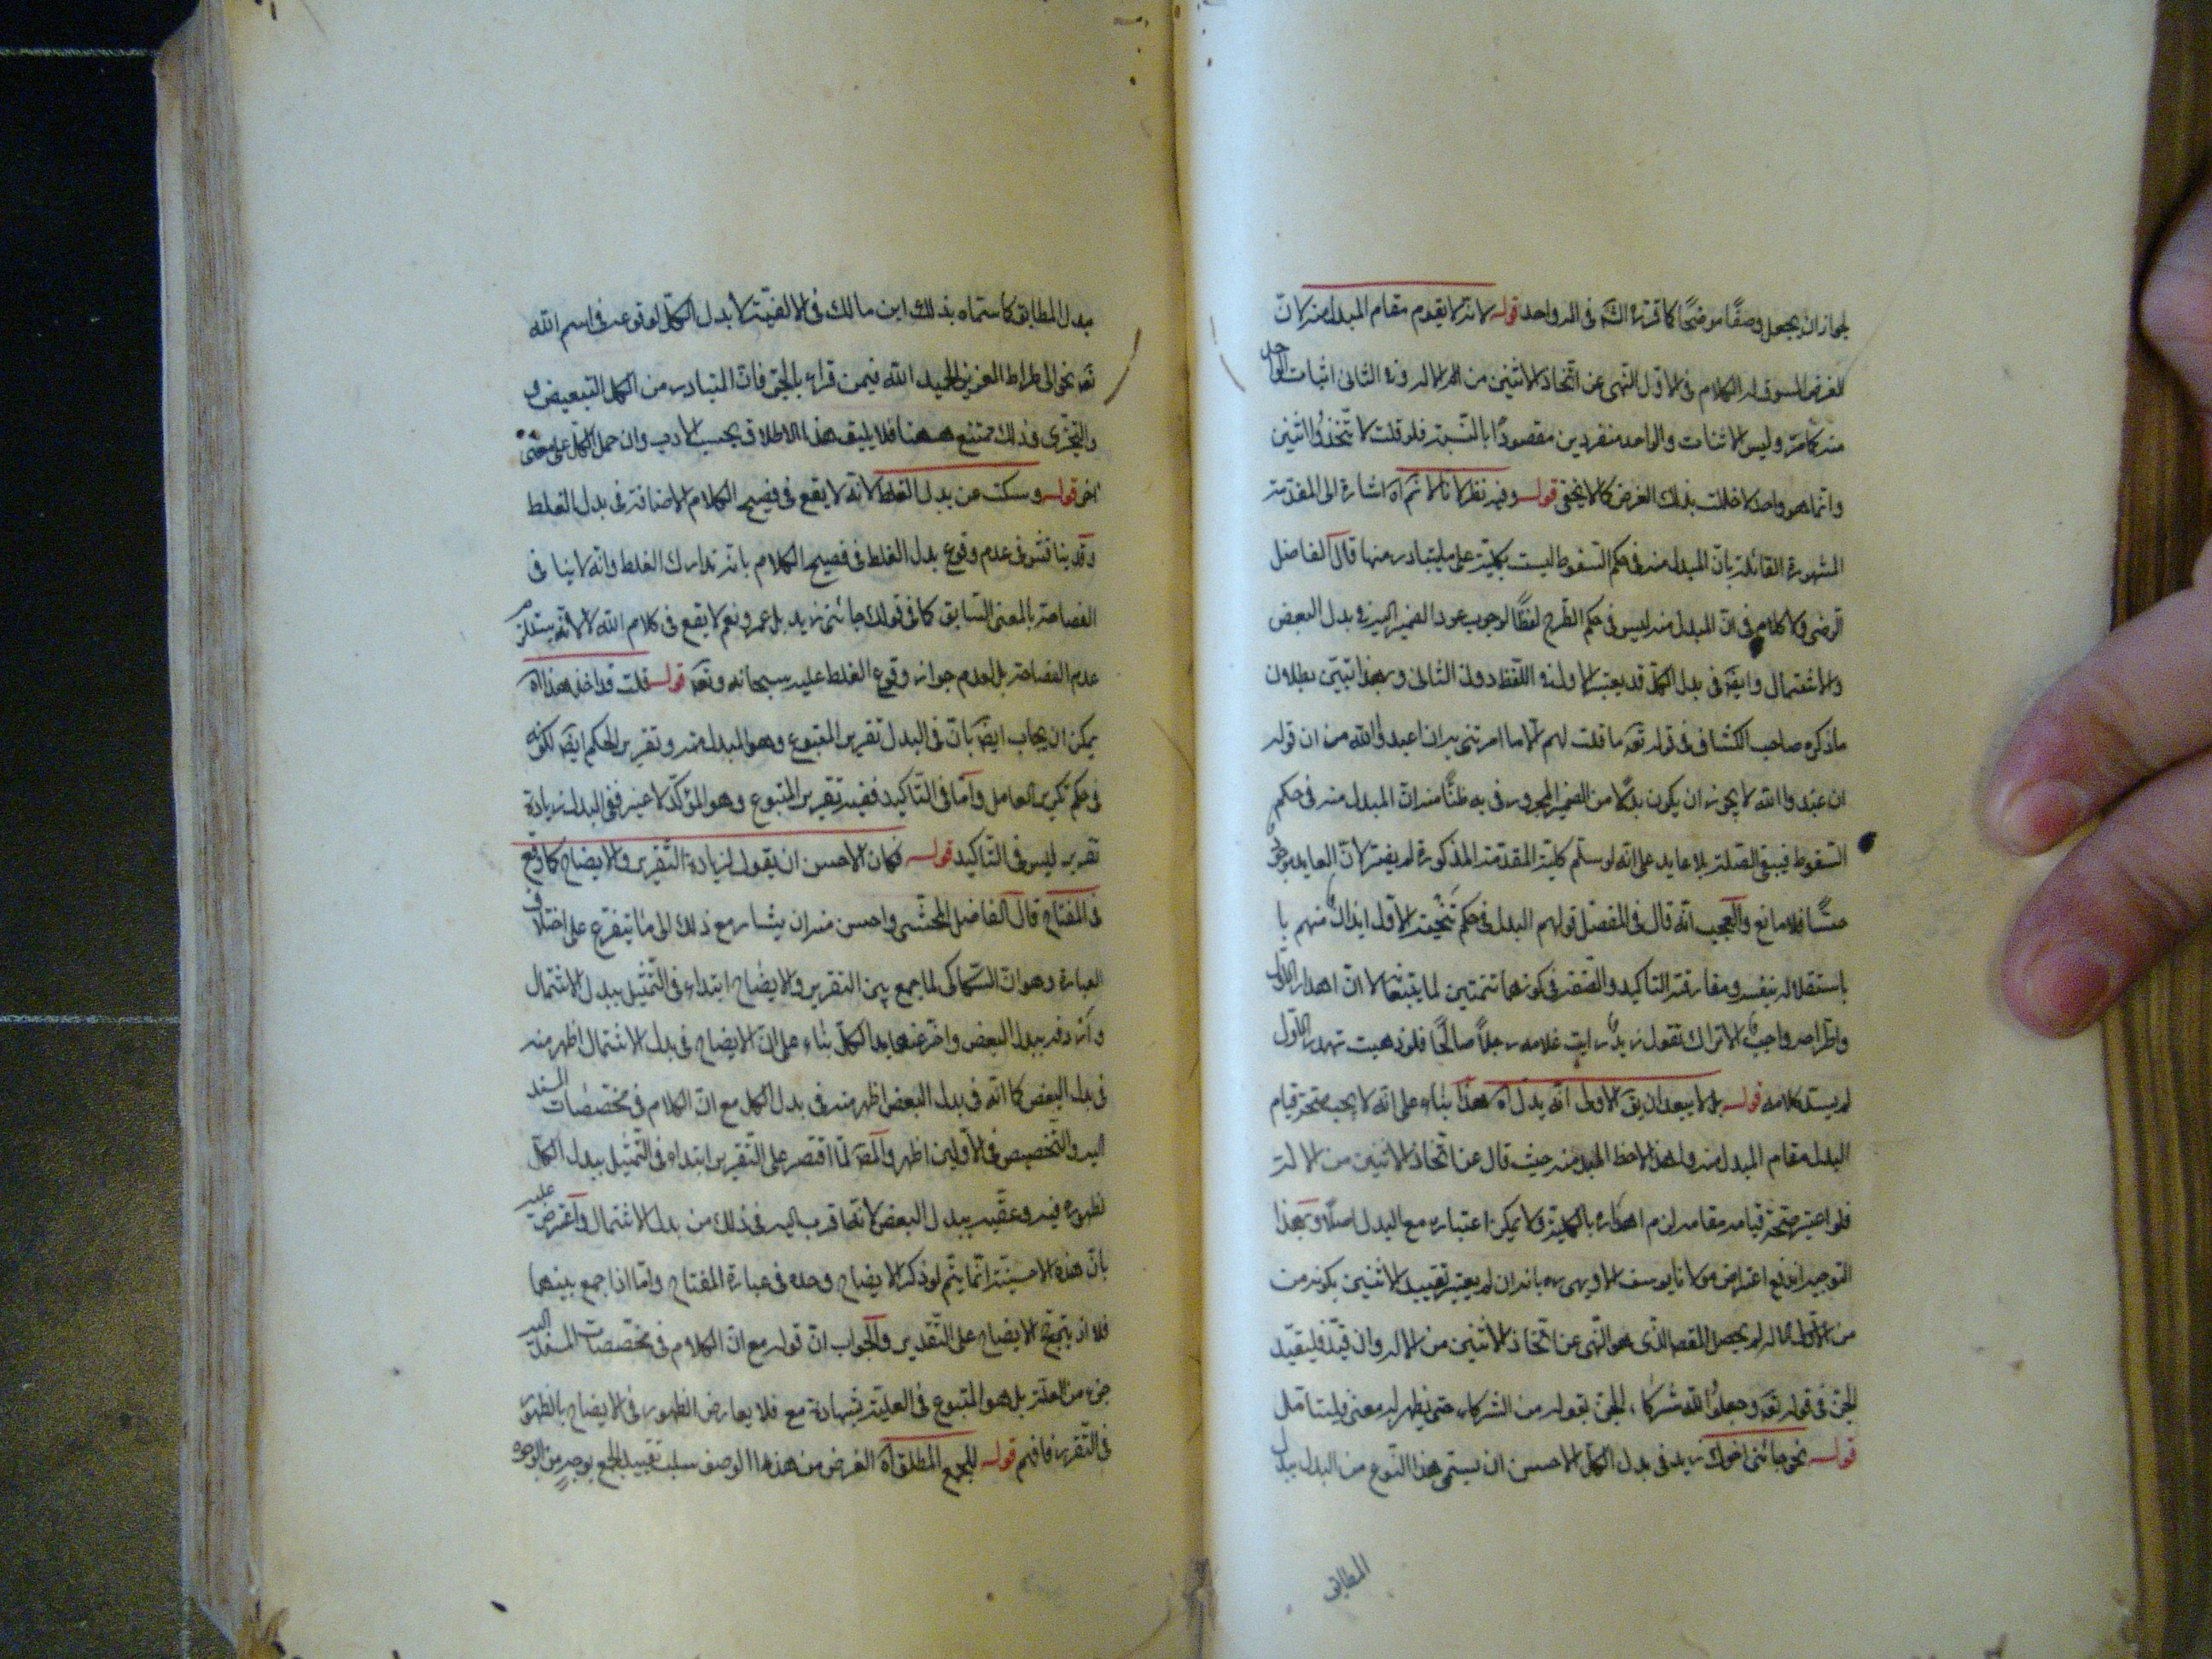 لجواز ان يجعل وصفًا موضحًا كما قرره الشه فى اله واحد قوله لانه لا يقوم مقام المبدل منه لان
الغرض المسوق له الكلام فى الاول النهى عن اتخاذ الاثنين من الاله وفى الثانى اثبات الواحد
منه كما مر وليس الاثنان والواحد منفردين مقصودًا بالنسبة فلو قلت لا تتخذوا اثنين
وانما هو واحد لاخللت بذلك الغرض كما لا يخفى قوله وفيه نظر لانا لا نم اه اشارة الى المقدمة
المشهورة القائلة بان المبدل منه فى حكم السقوط ليست بكلية على ما يتبادر منها قال الفاضل
الرضى ولا كلام فى ان المبدل منه ليس فى حكم الطرح لفظًا لوجوب عود الضمير اليه فى بدل البعض
والاشتمال وايضا فى بدل الكل قد يعتبر الاول فى اللفظ دون الثانى وبهذا تبين بطلان
ما ذكره صاحب الكشاف فى قوله تعه ما قلت لهم الا ما امرتنى به ان اعبدوا الله من ان قوله
ان اعبدوا الله لا يجوز ان يكون بدلًا من الضمير المجرور فى به ظنًا منه ان المبدل منه فى حكم
السقوط فيبقى الصلة بلا عايد على انه لو سلم كلية المقدمة المذكورة لم يضر لان العايد موجود
حسًا فلا مانع والعجب انه قال فى المفصل قولهم البدل فى حكم تنحية الاول ايذان منهم با
باستقلاله بنفسه ومفارقته التاكيد والصفة فى كونهما تتمتين لما يتبعانه لا ان اهدار الاول
واطراحه واجب الا تراك تقول زيد رايت غلامه رجلًا صالحًا فلو ذهبت تهدر الاول
لم يستد كلامه قوله بل لا يبعد ان يق الاولى انه بدل اه هذا بناء على انه لا يجب صحة قيام
البدل مقام المبدل منه ولهذا لاحظ المبدل منه حيث قال عن اتخاذ الاثنين من الاله
فلو اعتبر صحة قيامه مقامه لزم اهداره بالكلية ولا يمكن اعتباره مع البدل اصلًا وبهذا
التوجيه اندفع اعتراض مولانا يوسف الاوبهى ره بانه ان لم يعتبر تقييد الاثنين بكونه من
من الاله لم يحصل المقصه الذى هو النهى عن اتخاذ الاثنين من الاله وان قيد فليقيد
الجن فى قوله تعه وجعلوا لله شركاء الجن بقوله من الشركاء حتى يظهر له معنى فليتامل
قوله نحو جائنى اخوك زيد فى بدل الكل الاحسن ان يسمى هذا النوع من البدل ببدل
المطابق
بدل المطابق كما سماه بذلك ابن مالك فى الالفية لا بدل الكل لوقوعه فى اسم الله
تعه نحو الى صراط العزيز الحميد الله فيمن قراء بالجر فان المتبادر من الكل التبعيض و
والتجزى وذلك ممتنع ههنا فلا يليق هذا الاطلاق بحسب الادب وان حمل الكل على معنى
اخر قوله وسكت عن بدل الغلط لانه لا يقع فى فصيح الكلام الاضافة فى بدل الغلط
وقد يناقش فى عدم وقوع بدل الغلط فى فصيح الكلام بانه تدارك الغلط وانه لا ينافى
الفصاحة بالمعنى السابق كما فى قولك جائنى زيد بل عمرو نعم لا يقع فى كلام الله لا لانه يستلزم
عدم الفصاحة بل لعدم جواز وقوع الغلط عليه سبحانه وتعه قوله قلت قد اخذ هذا اه
يمكن ان يجاب ايضا بان فى البدل تقرير المتبوع وهو المبدل منه وتقرير الحكم ايضا لكونه
فى حكم تكرير العامل واما فى التاكيد ففيه تقرير المتبوع وهو المؤكد لا غير ففى البدل زيادة
تقرير ليس فى التاكيد قوله فكان الاحسن ان يقول لزيادة التقرير والايضاح كما وقع
فى المفتاح قال الفاضل المحشى واحسن منه ان يشار مع ذلك الى ما يتفرع على اختلاف
العبارة وهو ان السكاكى لما جمع بين التقرير والايضاح ابتداء فى التمثيل ببدل الاشتمال
واردفه ببدل البعض واخر عنهما بدل الكل بناء على ان الايضاح فى بدل الاشتمال اظهر منه
فى بدل البعض كما انه فى بدل البعض اظهر منه فى بدل الكل مع ان الكلام فى مخصصات المسند
اليه والتخصيص فى الاولين اظهر والمصه لما اقتصر على التقرير ابتداء فى التمثيل ببدل الكل
لظهوره فيه وعقبه ببدل البعض لانه اقرب اليه فى ذلك من بدل الاشتمال واعترض عليه
بان هذه الاحسنية انما يتم لو ذكر الايضاح وحده فى عبارة المفتاح واما اذا جمع بينهما
فلا اذ يتجه الايضاح على التقدير والجواب ان قوله مع ان الكلام فى مخصصات المسند اليه
جزء من العلة بل هو المتبوع فى العلية بشهادة مع فلا يعارض الظهور فى الايضاح بالظهور
فى التقرير فافهم قوله للجمع المطلق اه الغرض من هذا الوصف سلب تقييد الجمع بوجه من الوجوه